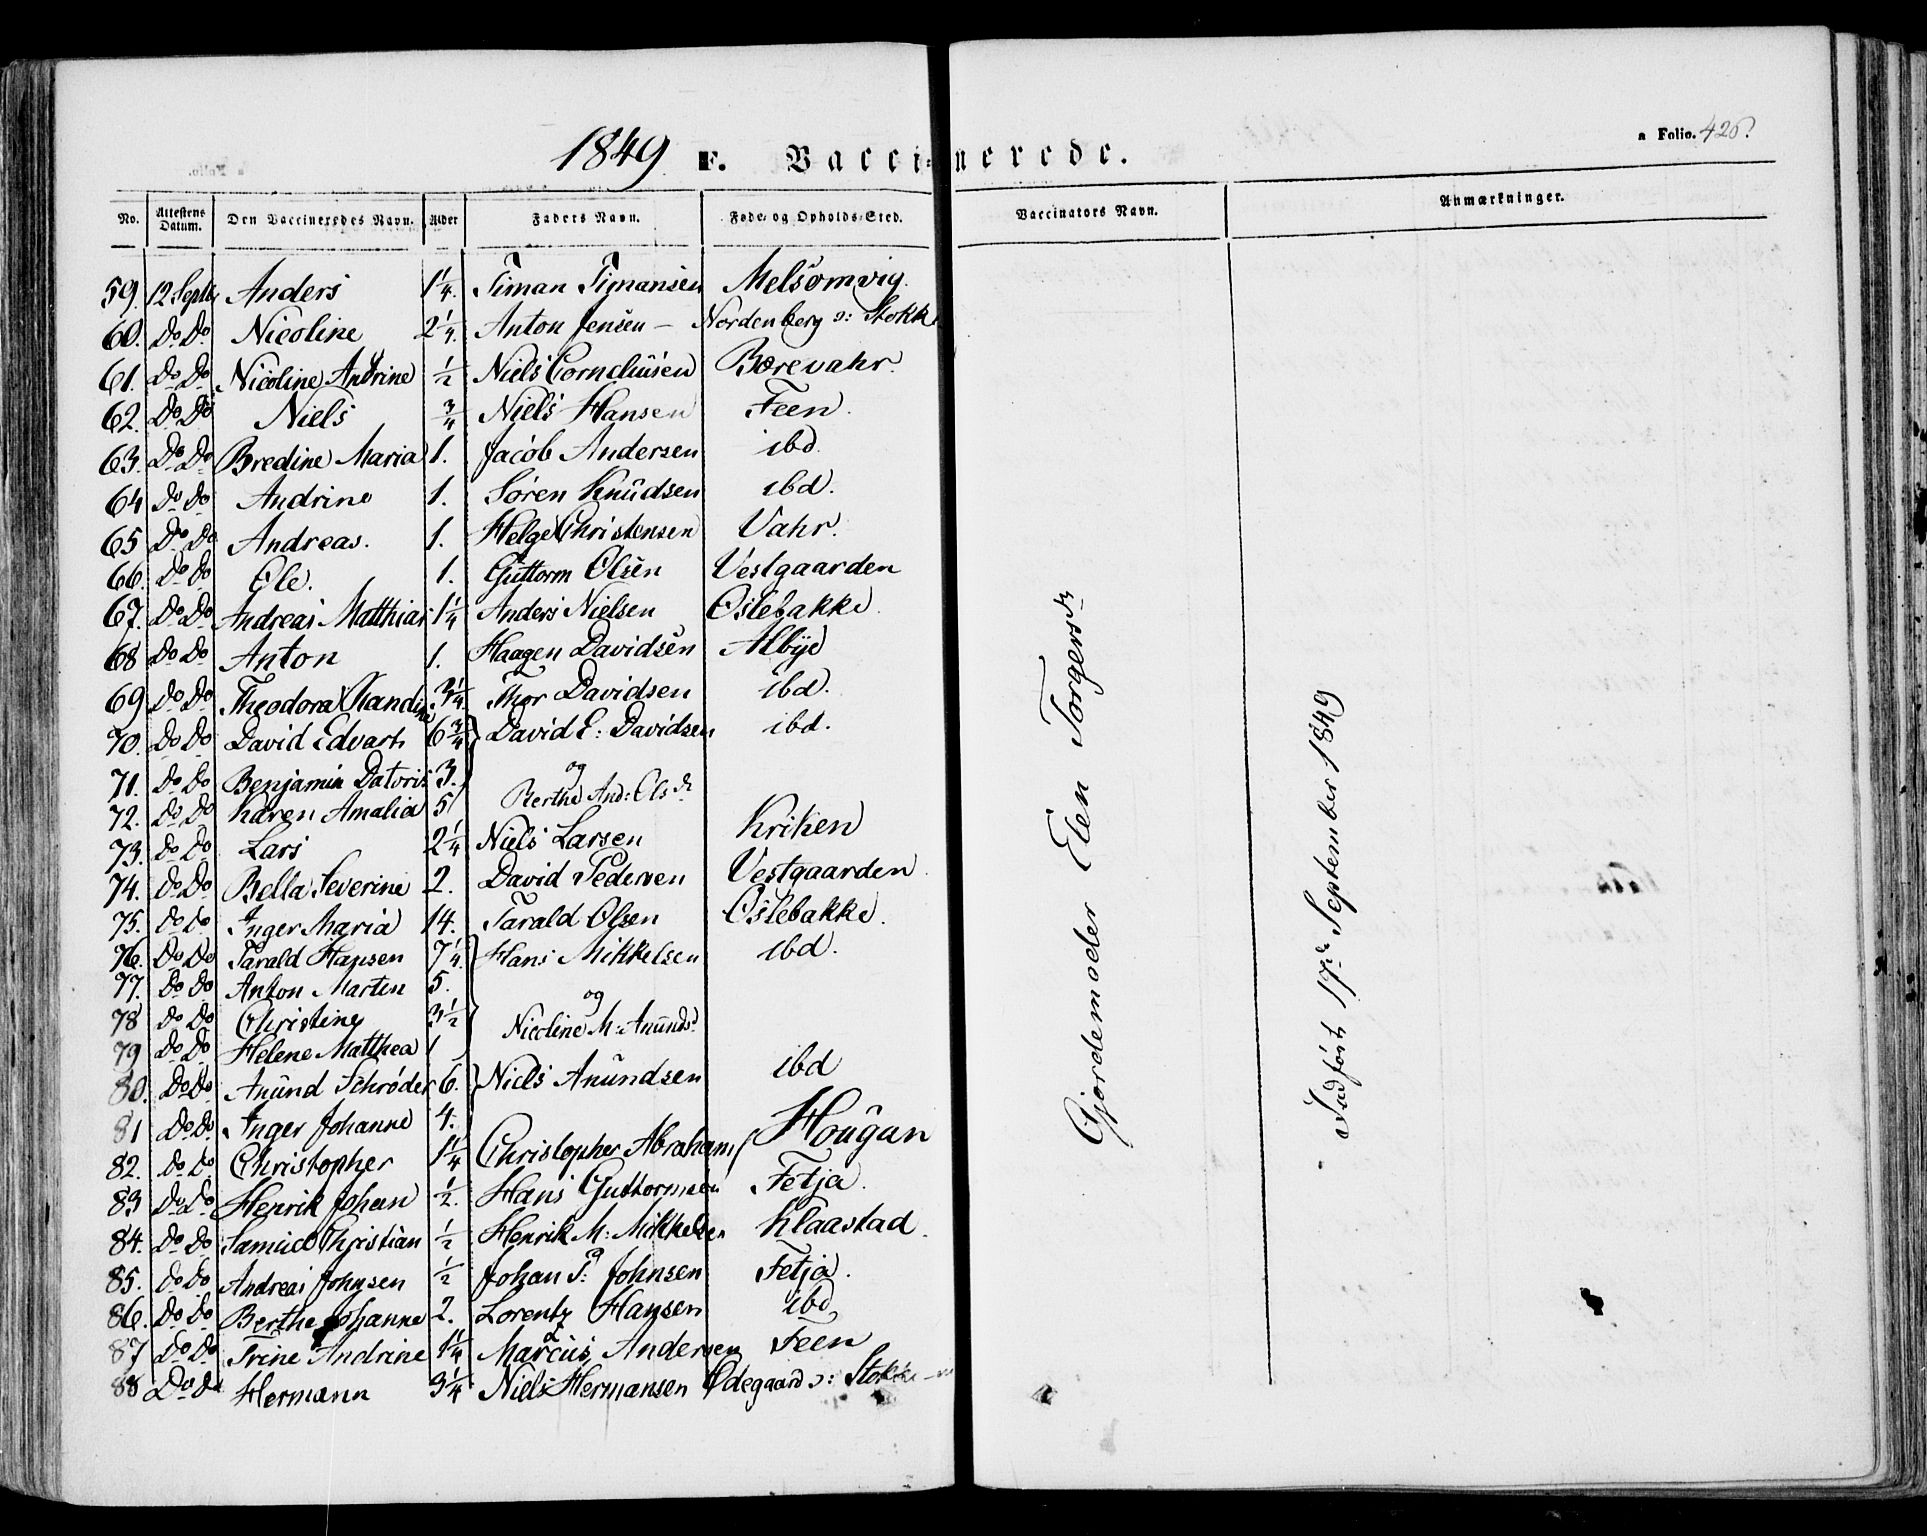 1849 F. Vaccinerede.
a Folio. 426.
No. | Attestens Datum. | Den Vaccineredes Navn. | Alder | Faders Navn. | Føde- og Opholds-Sted. | Vaccinators Navn. | Anmærkninger.
59. 12 Septb. Anders 1 1/4. Timan Timansen Melsomvig.
60. Do Do Nicoline 2 1/4. Anton Jensen – Nordenberg ɔ: Stokke
61. Do Do Nicoline Andrine 1/2 Niels Corneliusen Bærevahr.
62. Do Do Niels 3/4 Niels Hansen Feen.
63. Do Do Bredine Maria 1. Jacob Andersen ibd.
64 Do Do Andrine 1. Søren Knudsen ibd.
65 Do Do Andreas. 1. Helge Christensen Vahr.
66. Do Do Ole. 1. Guttorm Olsen Vestgaarden
67. Do Do Andreas Matthias 1 1/4 Anders Nielsen Ostebakke.
68 Do Do Anton 1. Haagen Davidsen Albye
69 Do Do Theodora 3 1/4 Thor Davidsen ibd.
70. Do Do David Edvart 6 3/4 } David E: Davidsen ibd.
71. Do Do Benjamin 3. og
72. Do Do Karen Amalia 5 Berthe And: Olsdr
73. Do Do Lars 2 1/4 Niels Larsen Kriken
74. Do Do Bella Severine 2. David Pedersen Vestgaarden.
75. Do Do Inger Maria 14. Tarald Olsen Ostebakke.
76. Do Do Tarald Hansen 7 1/4. } Hans Mikkelsen ibd.
77. Do Do Anton Martin 5. og
78 Do Do Christine 3 1/2 Nicoline M: Anunds.
79 Do Do Helene Matthea 1
80. Do Do Anund Schrøder 6. } Niels Anundsen ibd
81 Do Do Inger Johanne 4.
82. Do Do Christopher 1 1/4 Christopher Abrahams Hougan
83 Do Do Henrik Johan 1/2. Hans Guttormsen Fetja.
84. Do Do Samuel Christian 1/2 Henrik M: Mikkelsen Klaastad.
85. Do Do Andreas Johnsen 1/2 Johan P: Johnsen Fetja.
86. Do Do Berthe Johanne 2. Lorentz Hansen ibd.
87 Do Do Trine Andrine 1 1/4 Marcus Andersen Feen
88 Do Do Hermann 3 1/4 Niels Hermansen Ødegaard ɔ: Stokke
Gjordemoder Elen Torgersdr
Indført 17de September 1849